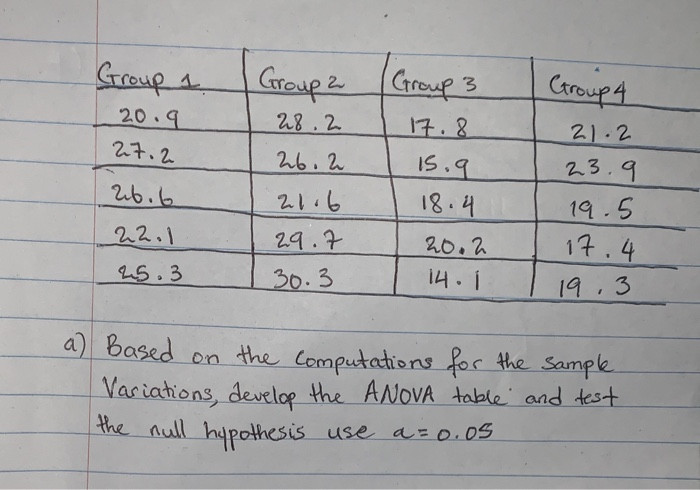 Group 1 Group 2 Group 3 Group 4
20.9 28.2 17.8 21.2
27.2 26.2 15.9 23.9
26.6 21.6 18.4 19.5
22.1 29.7 20.2 17.4
25.3 30.3 14.1 19.3
a) Based on the Computations for the sample
Variations, develop the ANOVA table and test
the null hypothesis use a=0.05